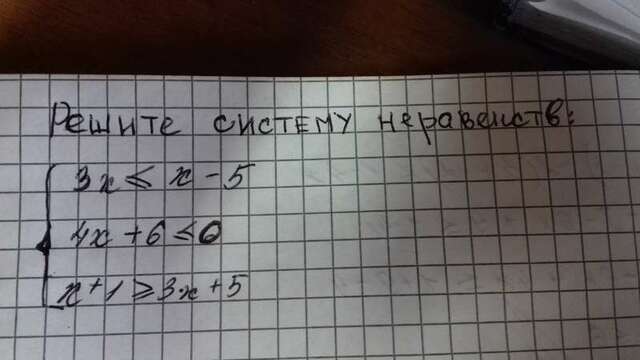 Решите систему неравенств:
3x ≤ x - 5
4x + 6 ≤ 0
x + 1 ≥ 3x + 5